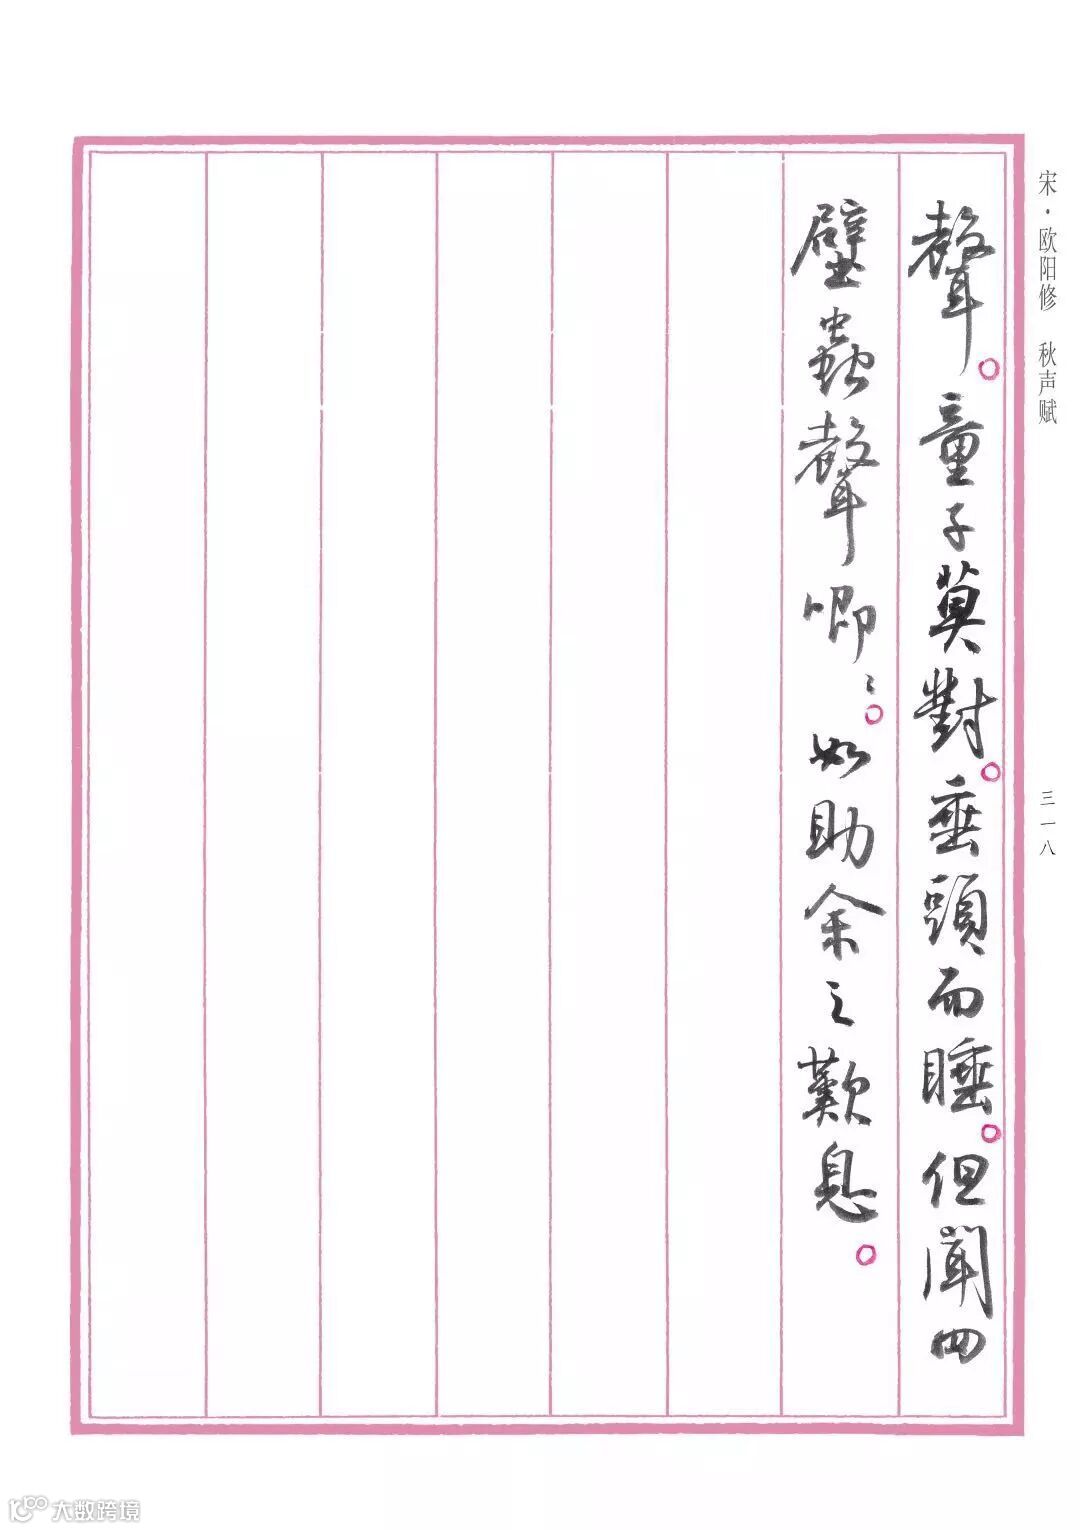 宋·欧阳修 秋声赋
三一八
聲。童子莫對。垂頭而睡。但聞四
壁蟲聲唧〻。如助余之歎息。
大数跨境